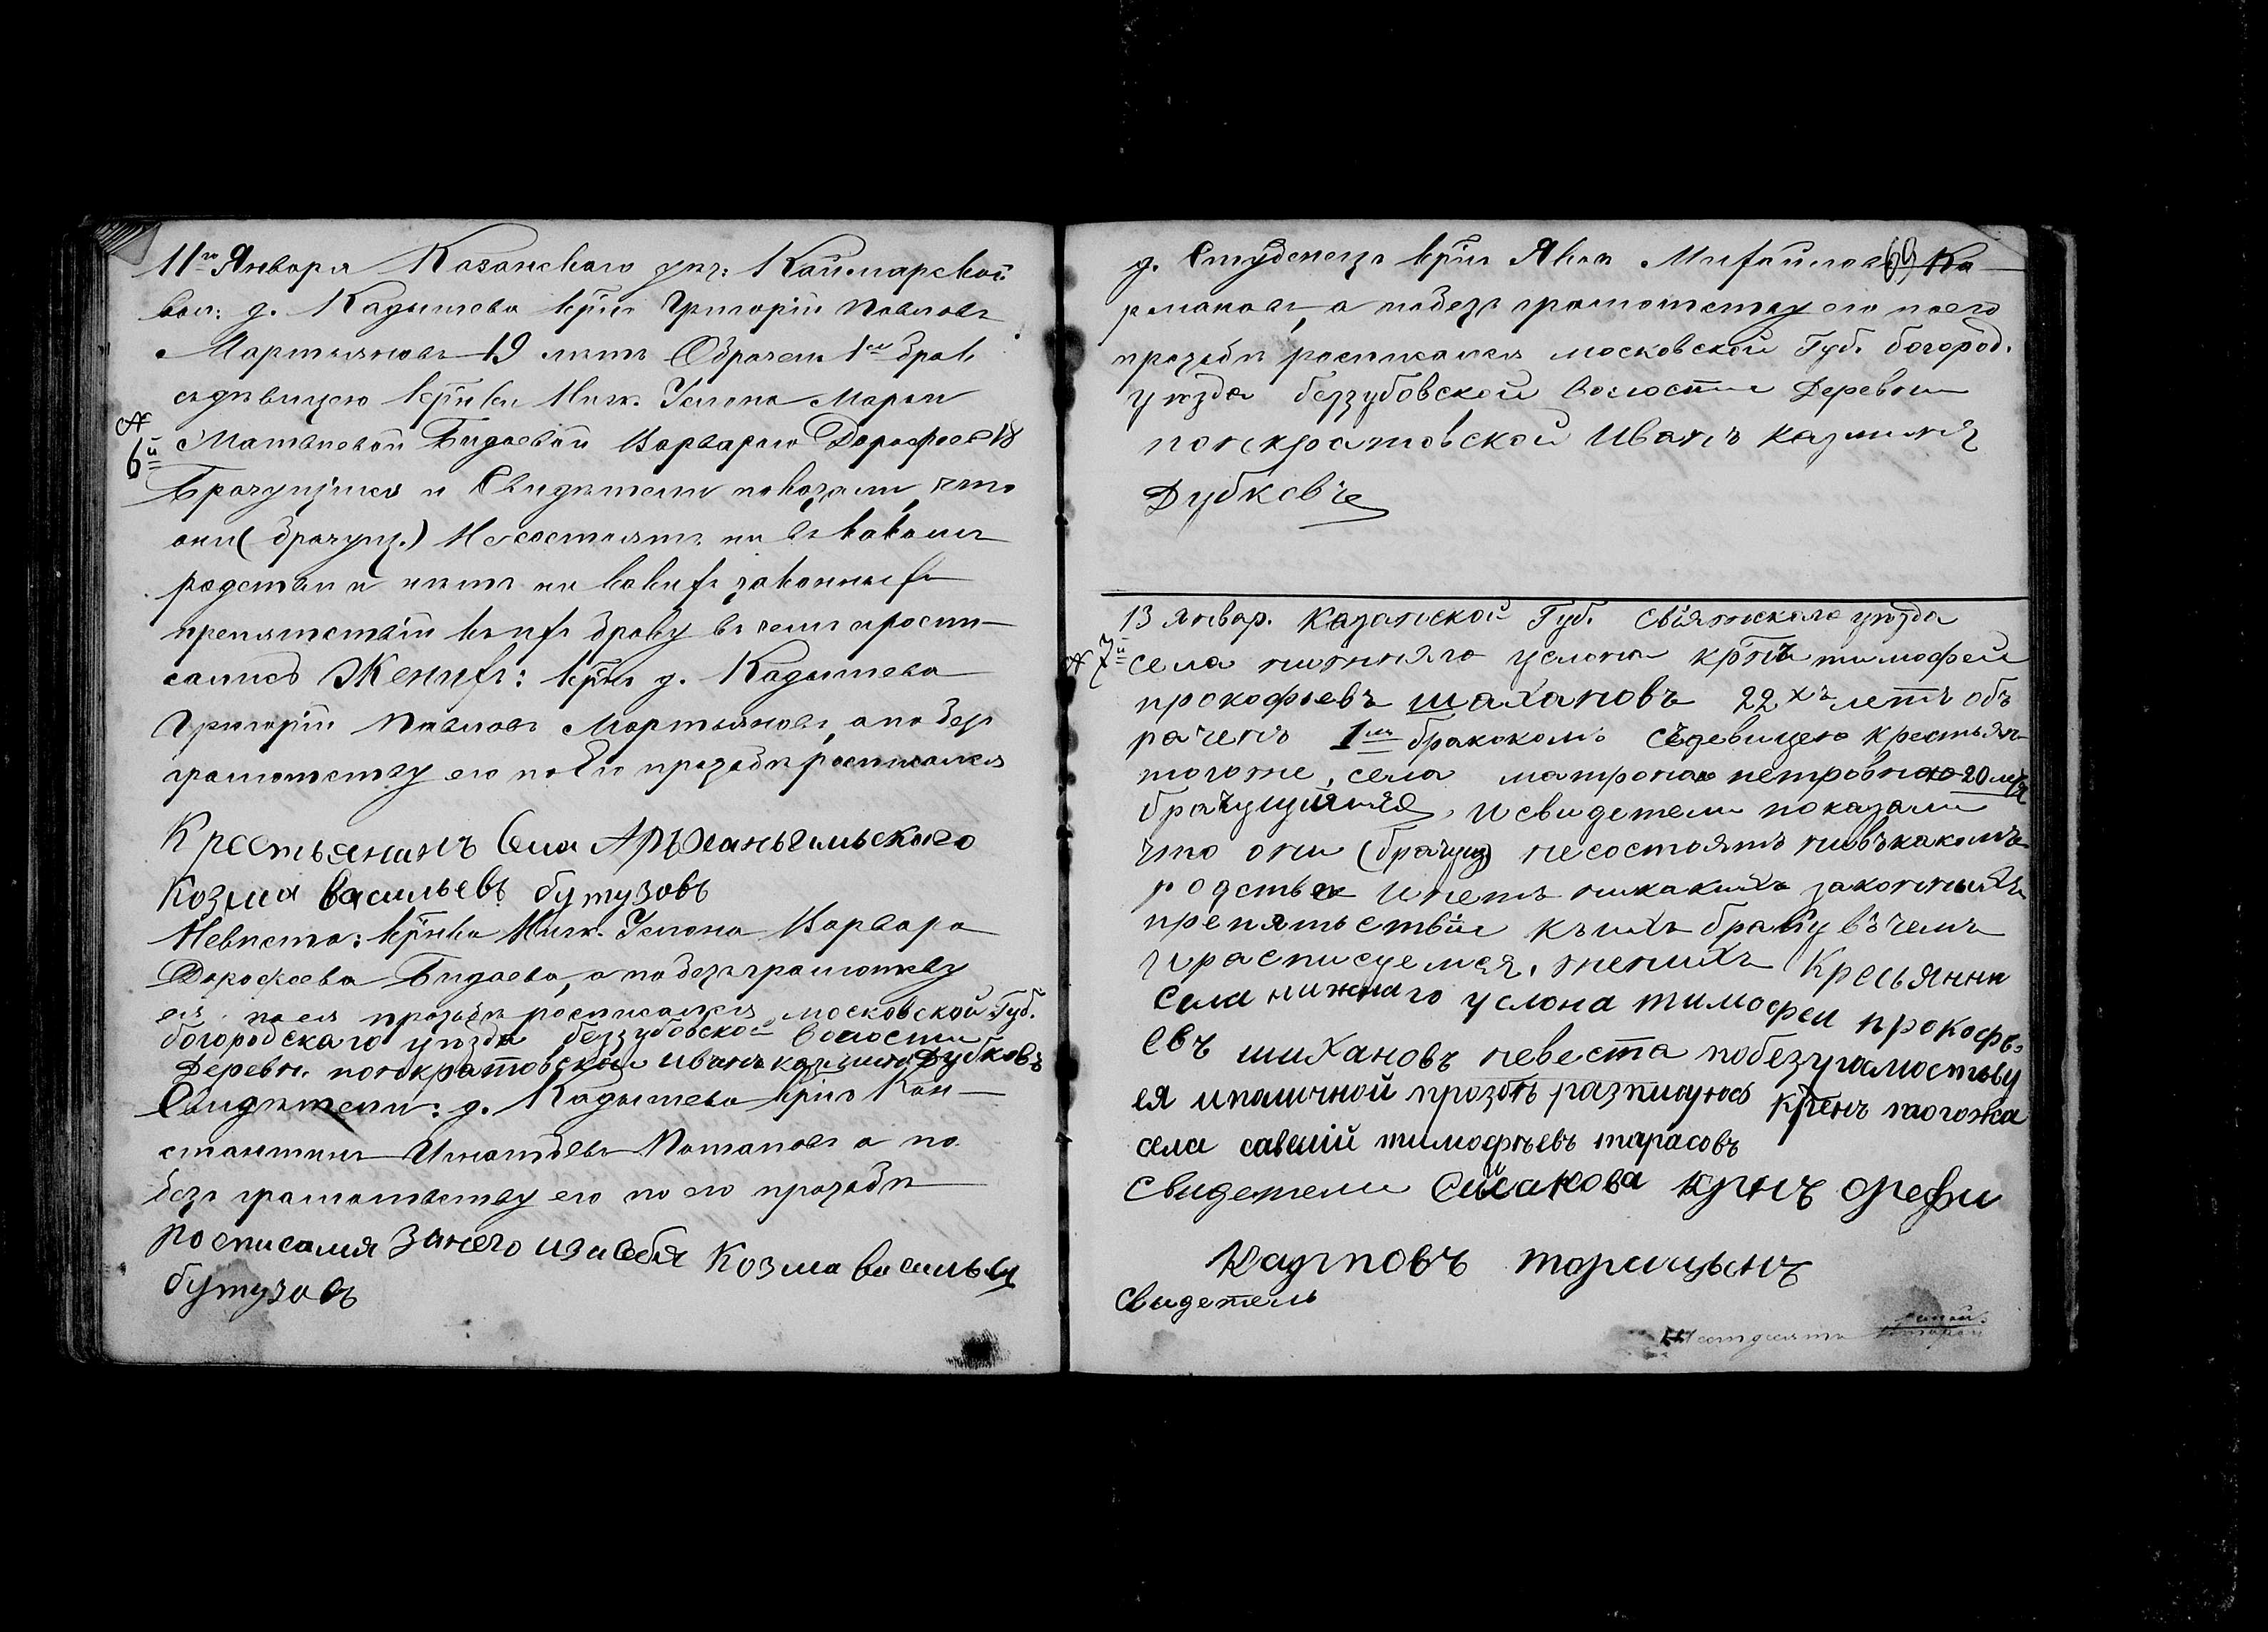 11го Января Казанскаго уѣз: Каймарской
вол: д. Кадышева крн Григорій Павловъ
Мартьяновъ 19 лѣтъ Обрачен 1мъ брак
съдѣвицею крнки Ниж. Услона Марьи
6й Матвѣевой Бидаевой Варварою Дорофеев 18
Брачущіися и Свидѣтели показали, что
они (брачущ.) Несостоятъ ни въ какомъ
родствѣ и нѣтъ ни какихъ законныхъ
препятствій къ ихъ браку въ чемъ и роспи-
сались Женихъ: крн д. Кадышева
Григорій Павловъ Мартьяновъ, а по без
грамотству его по Его прозьбѣ росписался
Крестьянинъ Села Архананьгильского
Козма Васильевъ бутузовъ
Невѣста: крнка Ниж. Услона Варвара
Дорофеева Бидаева, а по безъграмотству
ея по ея прозьбѣ росписался московской Губ.
богородскаго уѣзда беззубовской волости
Деревн. понкратовской иванъ казминъ Дубковъ
Свидѣтели: д. Кадышева крнъ Кон-
стантинъ Игнатьевъ Потаповъ а по
безъ грамотству его по его прозьбѣ
росписался занего изасебя Козма васильев
бутузовъ
д. Студенецъ крн Яковъ Михайловъ 69 Ка-
рмановъ, а побезъ грамотству его поего
прозьбѣ росписался московской Губ. богород.
уѣзда беззубовской волости Деревни
понкратовской Иванъ казминъ
Дубковъ
13 январ. Казанской Губ. Свіяжскаго уѣзда
7й села нижняго услона крнъ тимофей
прокофьевъ шахановъ 22хъ летъ об
раченъ 1мъ бракокомъ съдевицею крестьян
тогоже села матроною петровною 20 летъ
брачущійся, и свидетели показали
что они (брачущ) несостоятъ нивъкакомъ
родстве инетъ никакихъ законныхъ
препятьствій къихъ браку въчемъ
ирасписуемся, женихъ Кресьянин
села нижнаго услона тимофеи прокофь-
евъ шихановъ невеста побезуграмостьву
ея иполичной прозбѣ разпиуюсь крснъ тогожа
села савелій тимофѣевъ тарасовъ
Свидетели крнъ орефи
Карповъ торицынъ
Свидетель